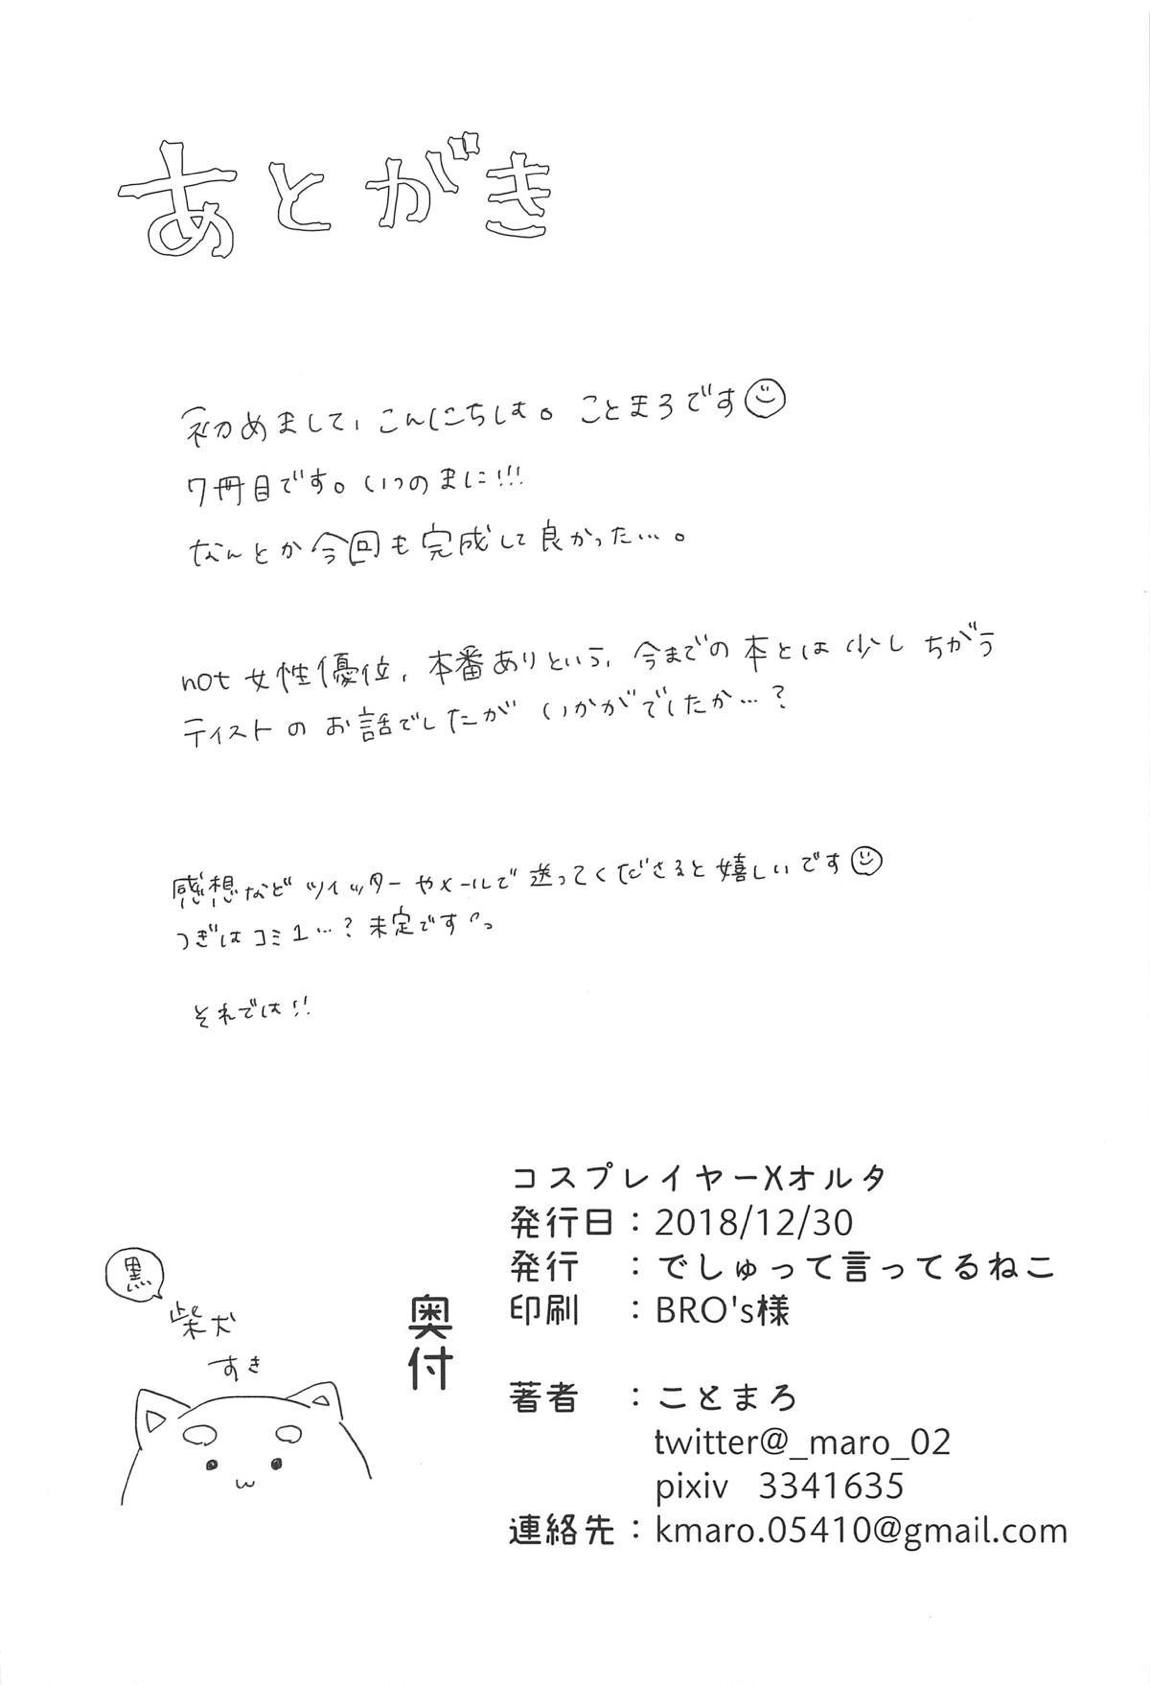 あとがき
初めまして、こんにちは。ことまろです
7冊目です。いつのまに!!!
なんとか今回も完成して良かった…。
not 女性優位、本番ありという、今までの本とは少しちがう
テイストのお話でしたが いかがでしたか…?
感想など ツイッターやメールで送ってくださると嬉しいです
つぎはコミ1…?未定です
それでは!!
黒
柴犬
すき
奥付
コスプレイヤーXオルタ
発行日：2018/12/30
発行　：でしゅって言ってるねこ
印刷　：BRO's様
著者　：ことまろ
twitter@_maro_02
pixiv 3341635
連絡先：kmaro.05410@gmail.com